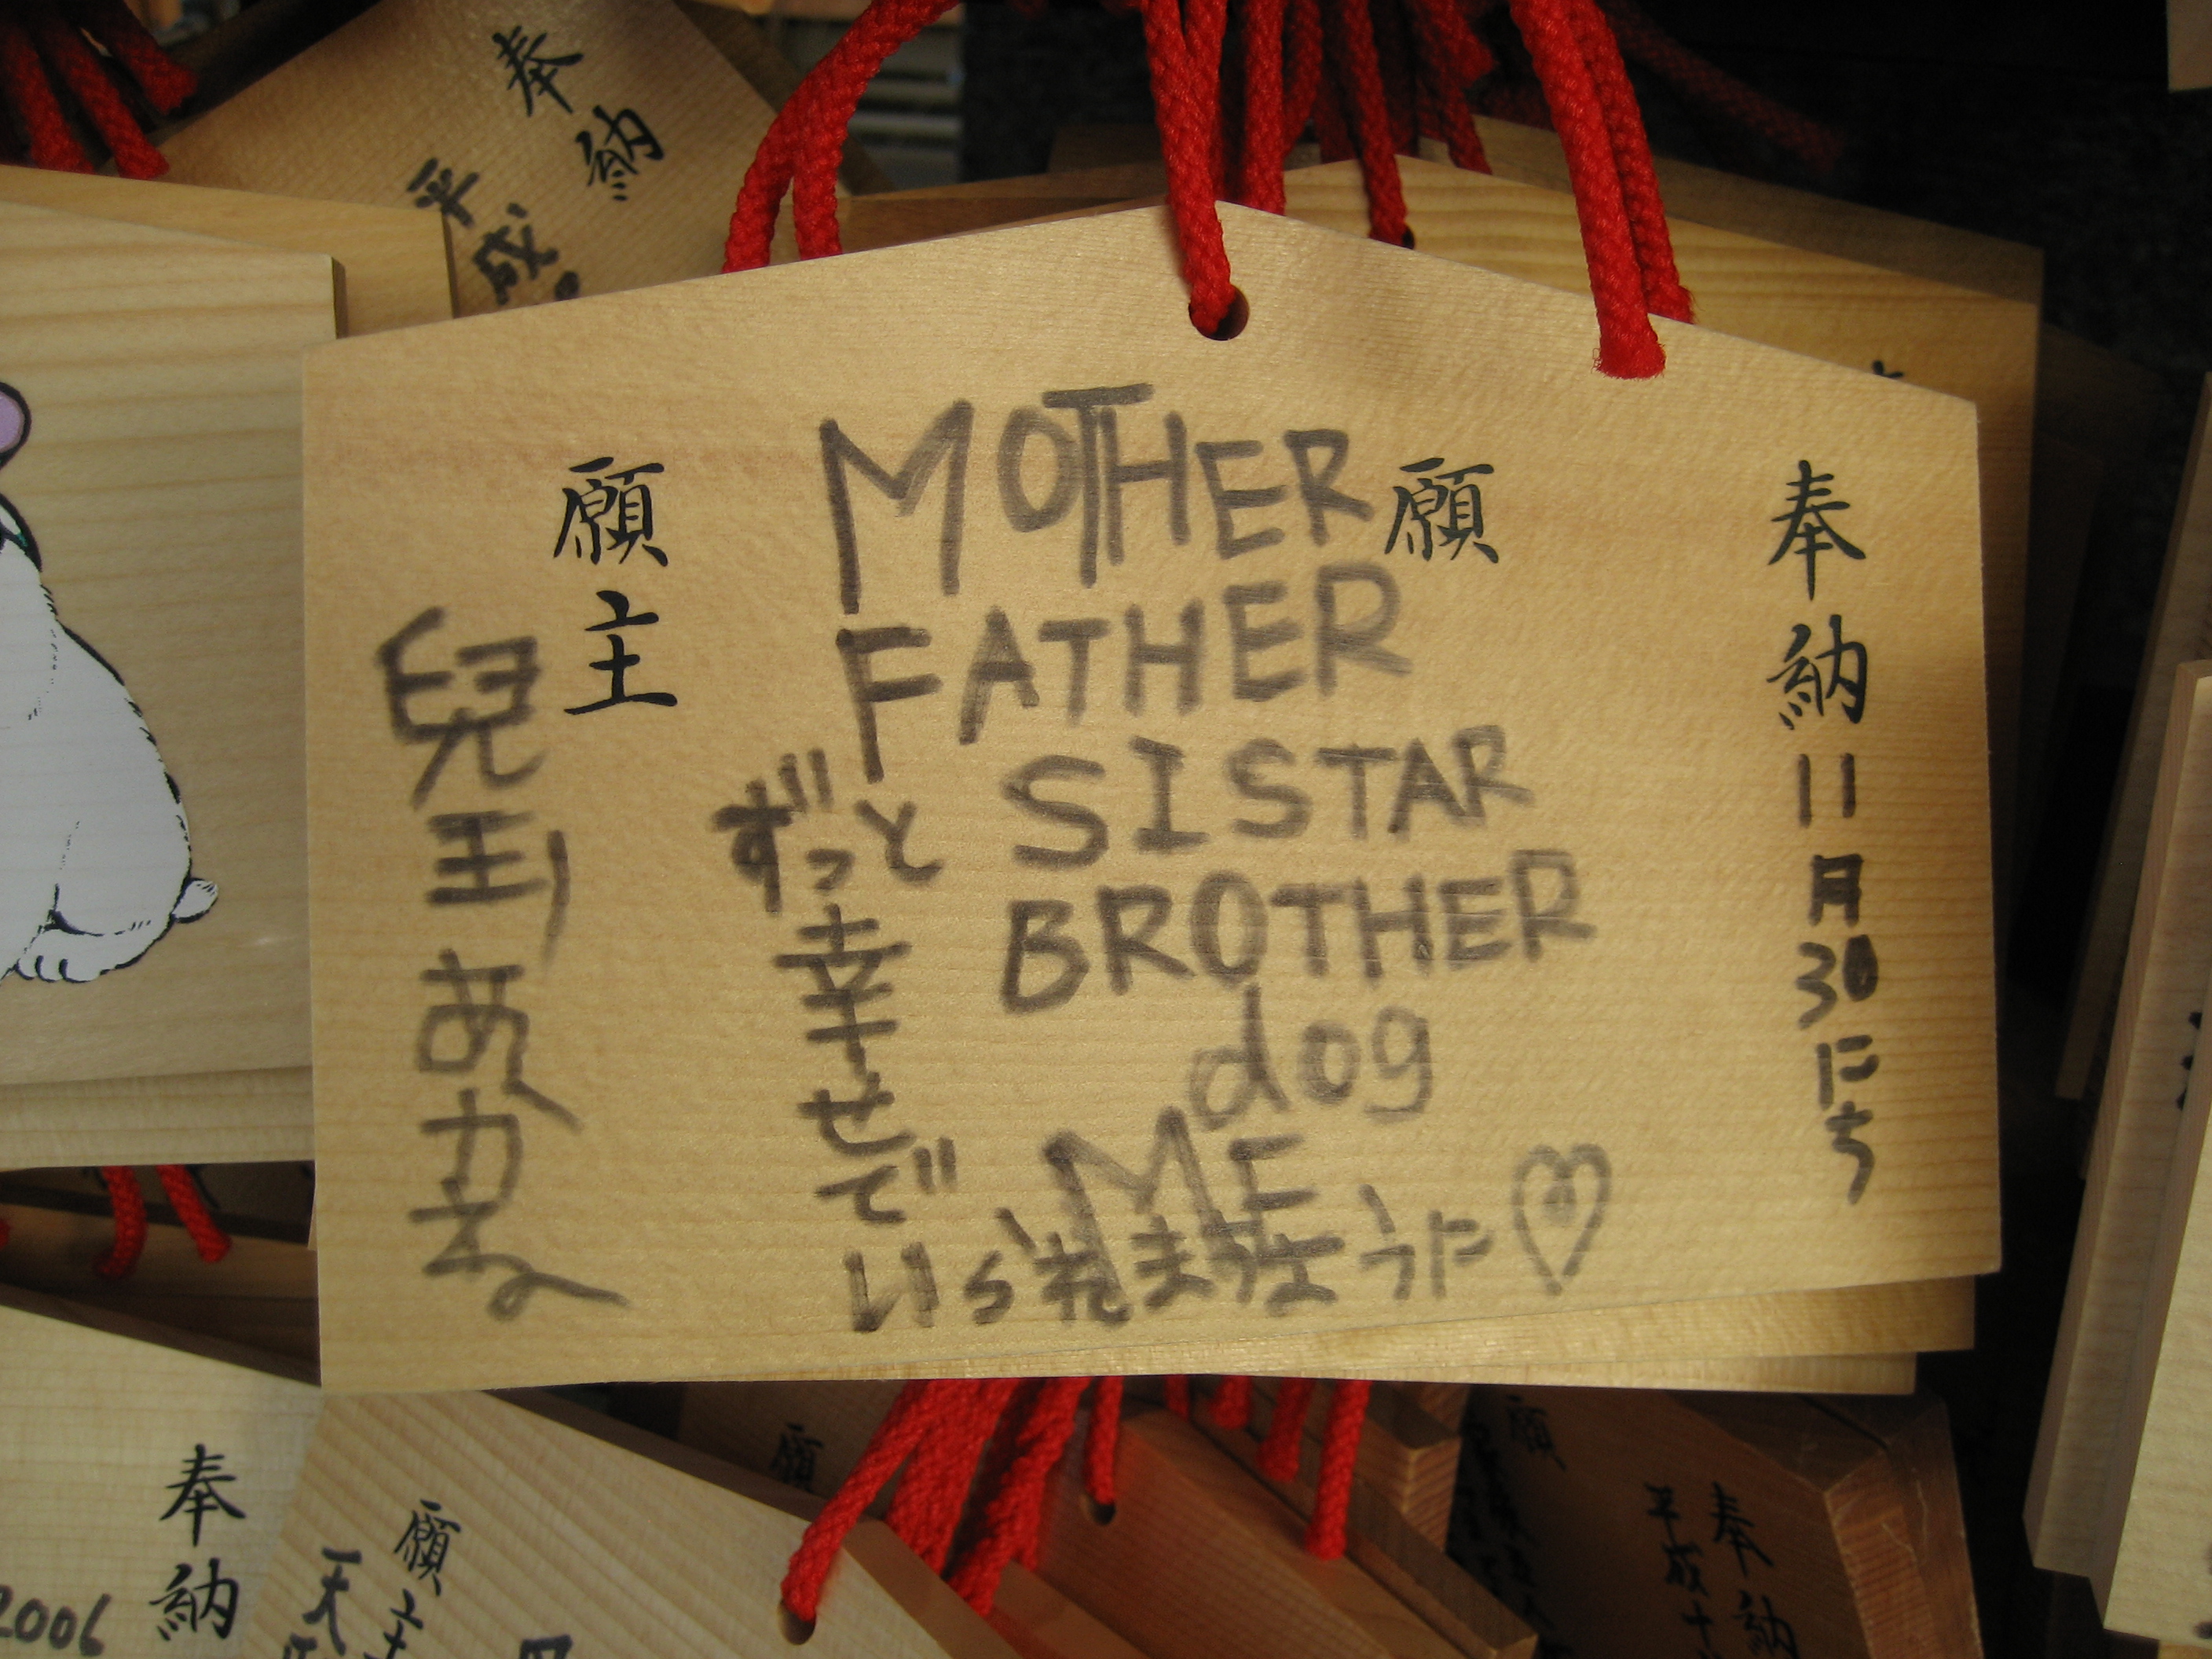 奉納
平成
奉納11月30にち
願
MOTHER
FATHER
SISTAR
BROTHER
dog
ME
ずっと
幸せで
いられますように♡
願主
兒玉あかね
奉納
2006
願主
天
願
願
奉納
平成十